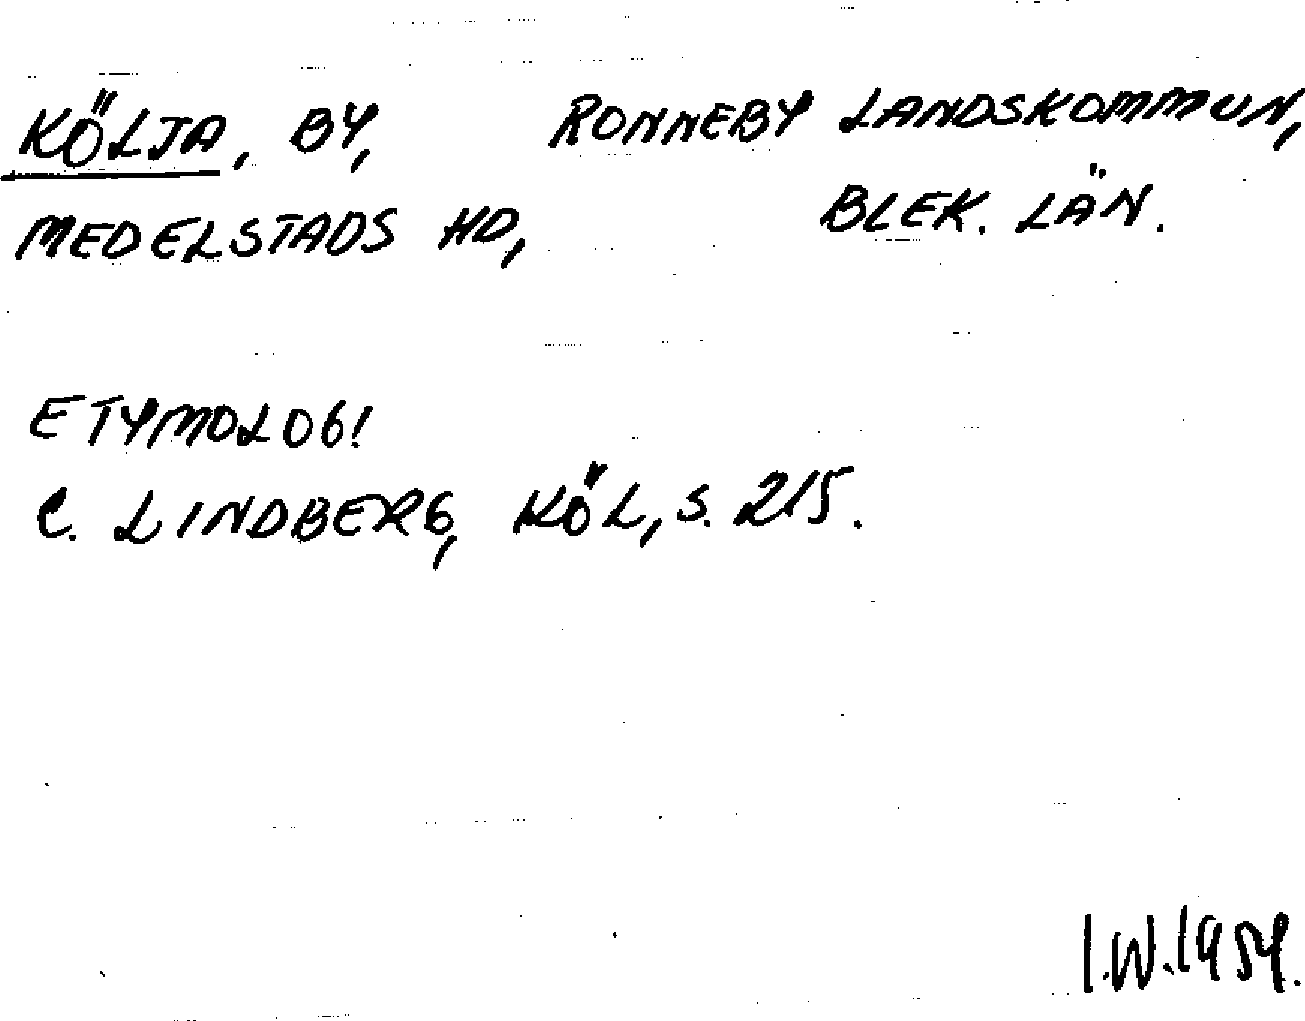 KÖLJA, BY, RONNEBY LANDSKOMMUN,
MEDELSTADS HD, BLEK. LÄN.
ETYMOLOGI
C. LINDBERG, KÖL, S. 215.
I.W. 1959.